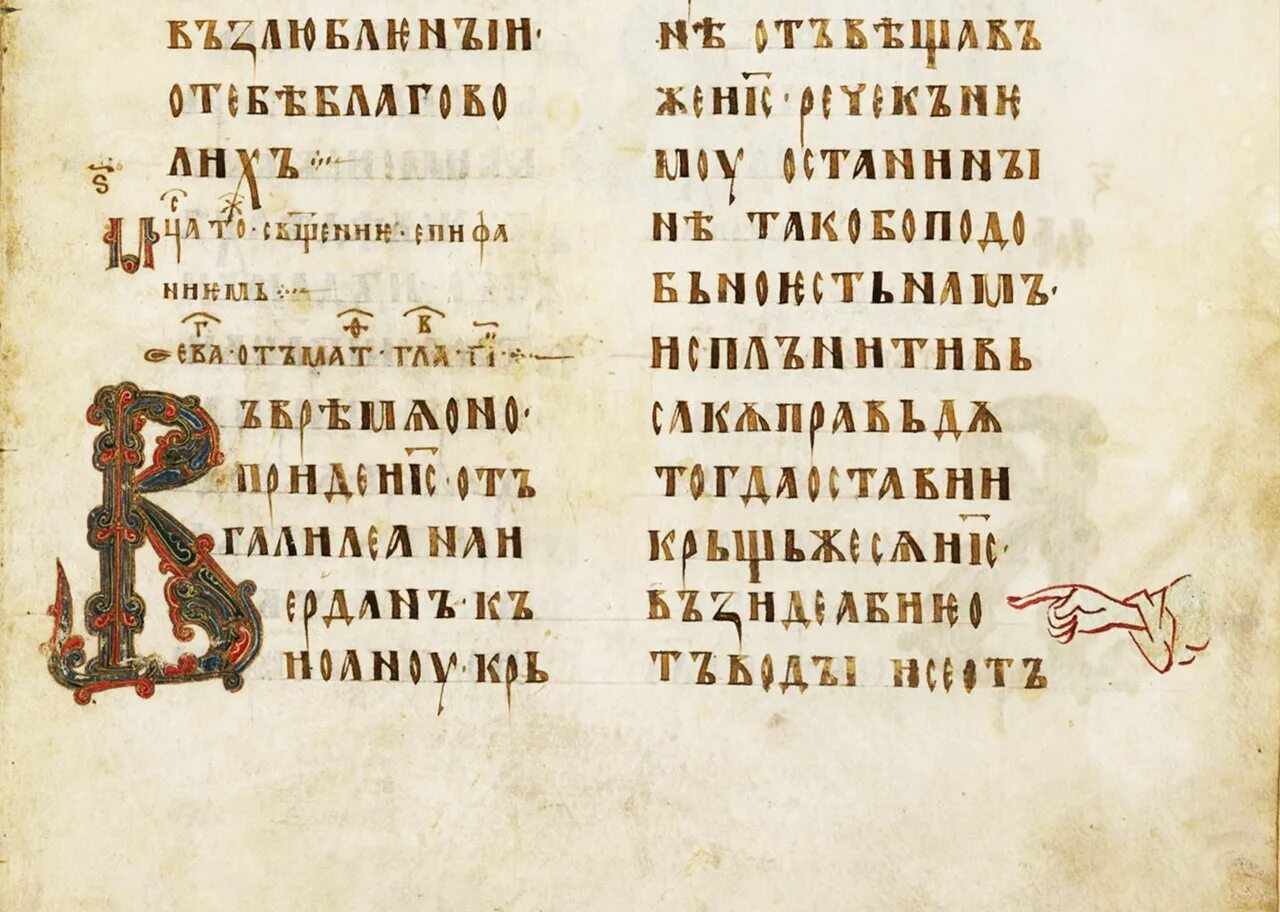 ВЪЗЛЮБЛЕНЪІИ·
ОТЕБѢБЛАГОВО
ЛИХЪ
Ѕ
МЦА ТО҃·СВЩ҃ЕНИѤ·ЕПИФА
НИѤМЬ
ЕВА·ОТЪМАТ·ГЛА·Г҃І·
ВЪВРѢМѦОНО·
ПРИДЕИ҃С·ОТЪ
ГАЛИЛЕѦ НАИ
ЕРДАНЪ·КЪ
ИОАНОУ·КРЬ
НѢ ОТЪВѢЩАВЪ
ЖЕИ҃С·РЕЧЕКЪНѤ
МОУ ОСТАНИНЪІ
НѢ ТАКОБОПОДО
БЬНОѤСТЬНАМЪ·
ИСПЛЪНИТИВЬ
САКѪПРАВЬДѪ
ТОГДАОСТАВИИ
КРЬЩЬЖЕСѦИ҃С·
ВЪЗИДЕАБИѤО
ТЪВОДЪІ ИСЕОТЪ